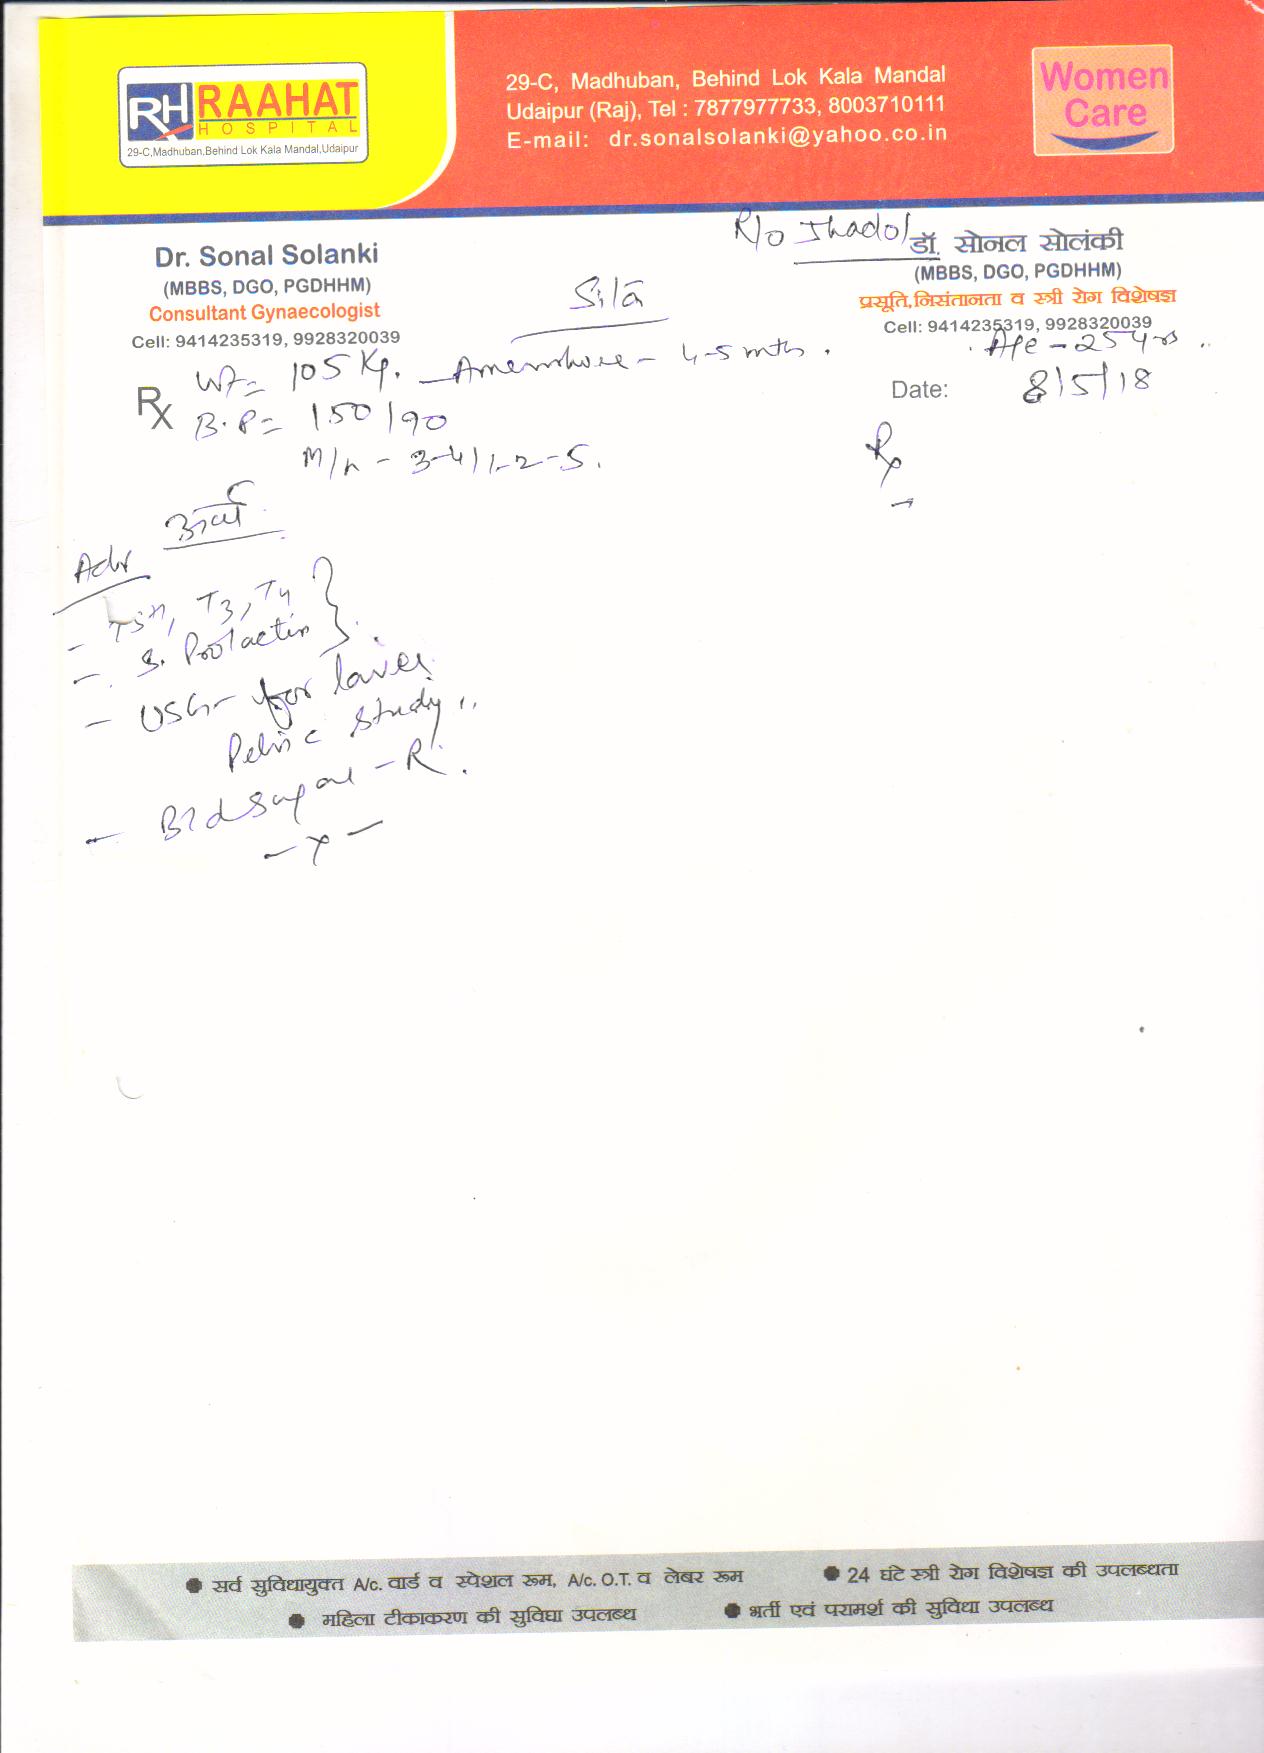 RH RAAHAT
HOSPITAL
29-C,Madhuban,Behind Lok Kala Mandal,Udaipur
29-C, Madhuban, Behind Lok Kala Mandal
Udaipur (Raj), Tel : 7877977733, 8003710111
E-mail: dr.sonalsolanki@yahoo.co.in
Women
Care
R/o Jhadol
Dr. Sonal Solanki
(MBBS, DGO, PGDHHM)
Consultant Gynaecologist
Cell: 9414235319, 9928320039
डॉ. सोनल सोलंकी
(MBBS, DGO, PGDHHM)
प्रसूति,निसंतानता व स्त्री रोग विशेषज्ञ
Cell: 9414235319, 9928320039
Age - 25 yrs
Date: 8/5/18
Rx
Wt = 105 Kg.
B.P = 150/90
M/h - 3-4/1-2-5.
- 4-5 mth.
Rx
Adv
- TSH, T3, T4
- S. Prolactin
- USG - for lower
Pelvic study
- Bld Sugar - R.
- x -
● सर्व सुविधायुक्त A/c. वार्ड व स्पेशल रूम, A/c. O.T. व लेबर रूम
● 24 घंटे स्त्री रोग विशेषज्ञ की उपलब्धता
● महिला टीकाकरण की सुविधा उपलब्ध
● भर्ती एवं परामर्श की सुविधा उपलब्ध